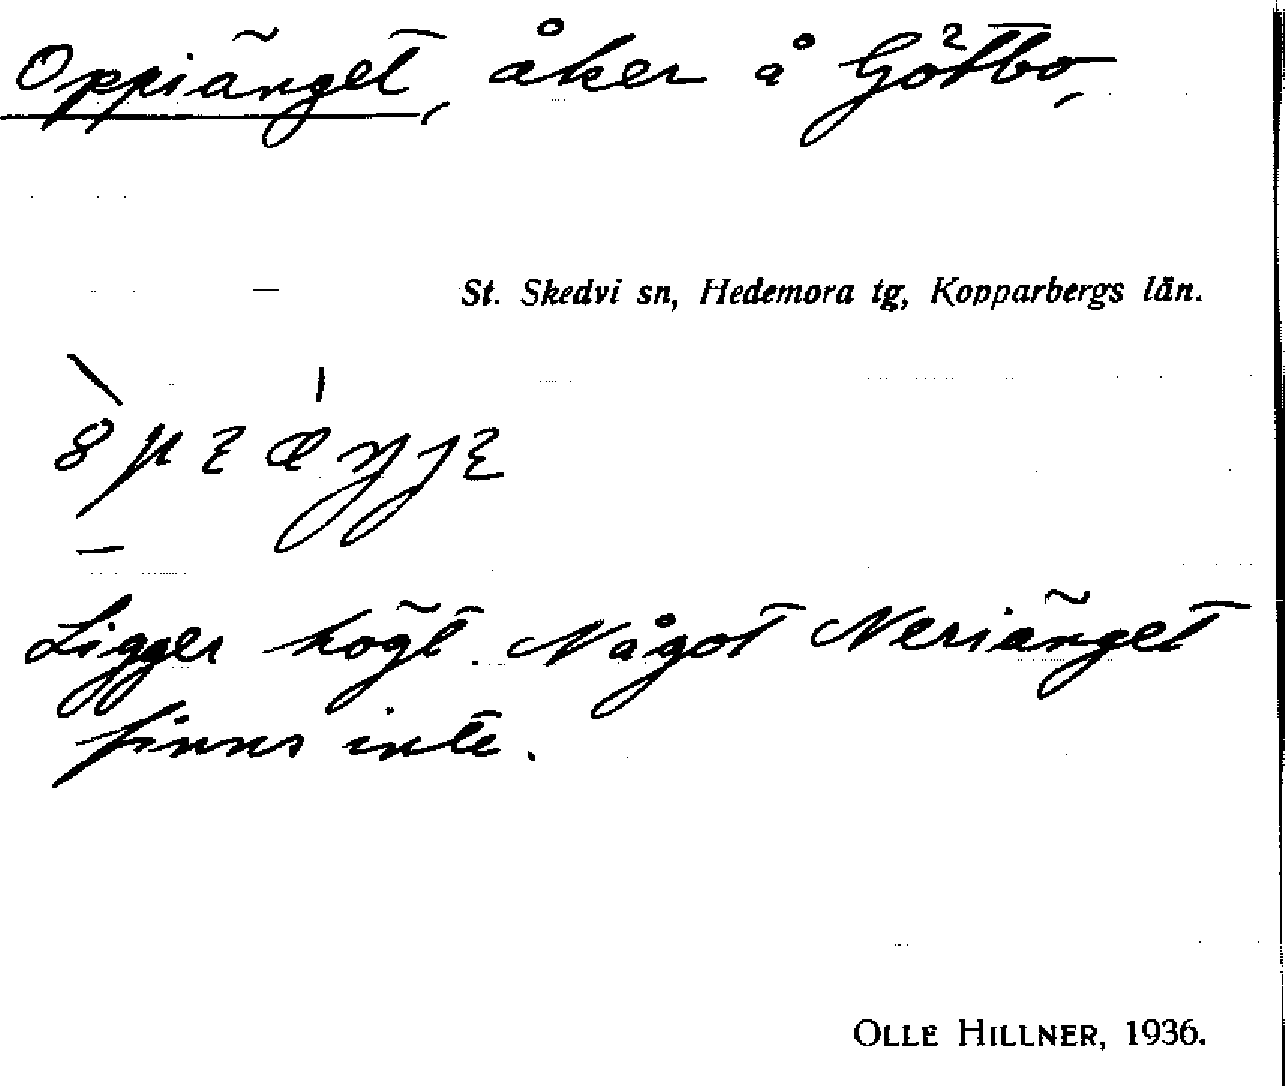 Oppiänget, åker å Götbo,
St. Skedvi sn, Hedemora tg, Kopparbergs län.
Ligger högt. Något Neriänget
finns inte.
OLLE HILLNER, 1936.